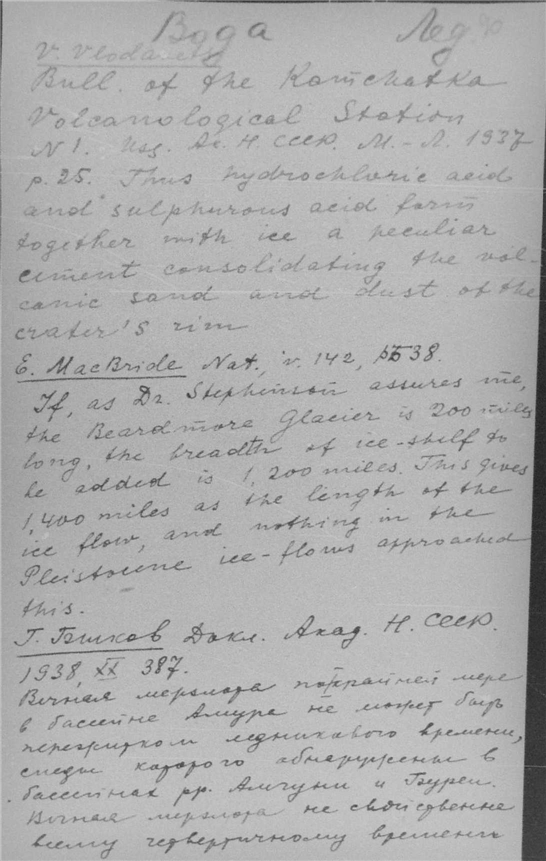 Вода Лед
V. Vlodavets
Bull. of the Kamchatka
Volcanological Station
N 1. Изд. Ак. Н. СССР. М.-Л. 1937
p. 25. Thus hydrochloric acid
and sulphurous acid form
together with ice a peculiar
cement consolidating the vol-
canic sand and dust of the
crater's rim
E. MacBride Nat., v. 142, 38.
If, as Dr. Stephenson assures me,
the Beardmore Glacier is 200 miles
long, the breadth of ice-shelf to
be added is 1,200 miles. This gives
1,400 miles as the length of the
ice flow, and nothing in the
Pleistocene ice-flows approached
this.
Г. Бычков Докл. Акад. Н. СССР.
1938, XX 387.
Вечная мерзлота по крайней мере
в бассейне Амура не может быть
пережитком ледникового времени,
следы которого обнаружены в
бассейнах рр. Амгуни и Буреи.
Вечная мерзлота не свойственна
всему четвертичному времени